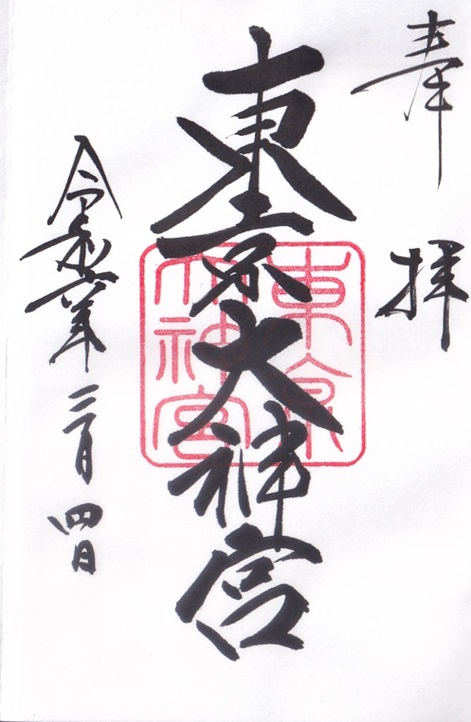 奉拝
東京大神宮
東京
大神宮
令和六年三月四日